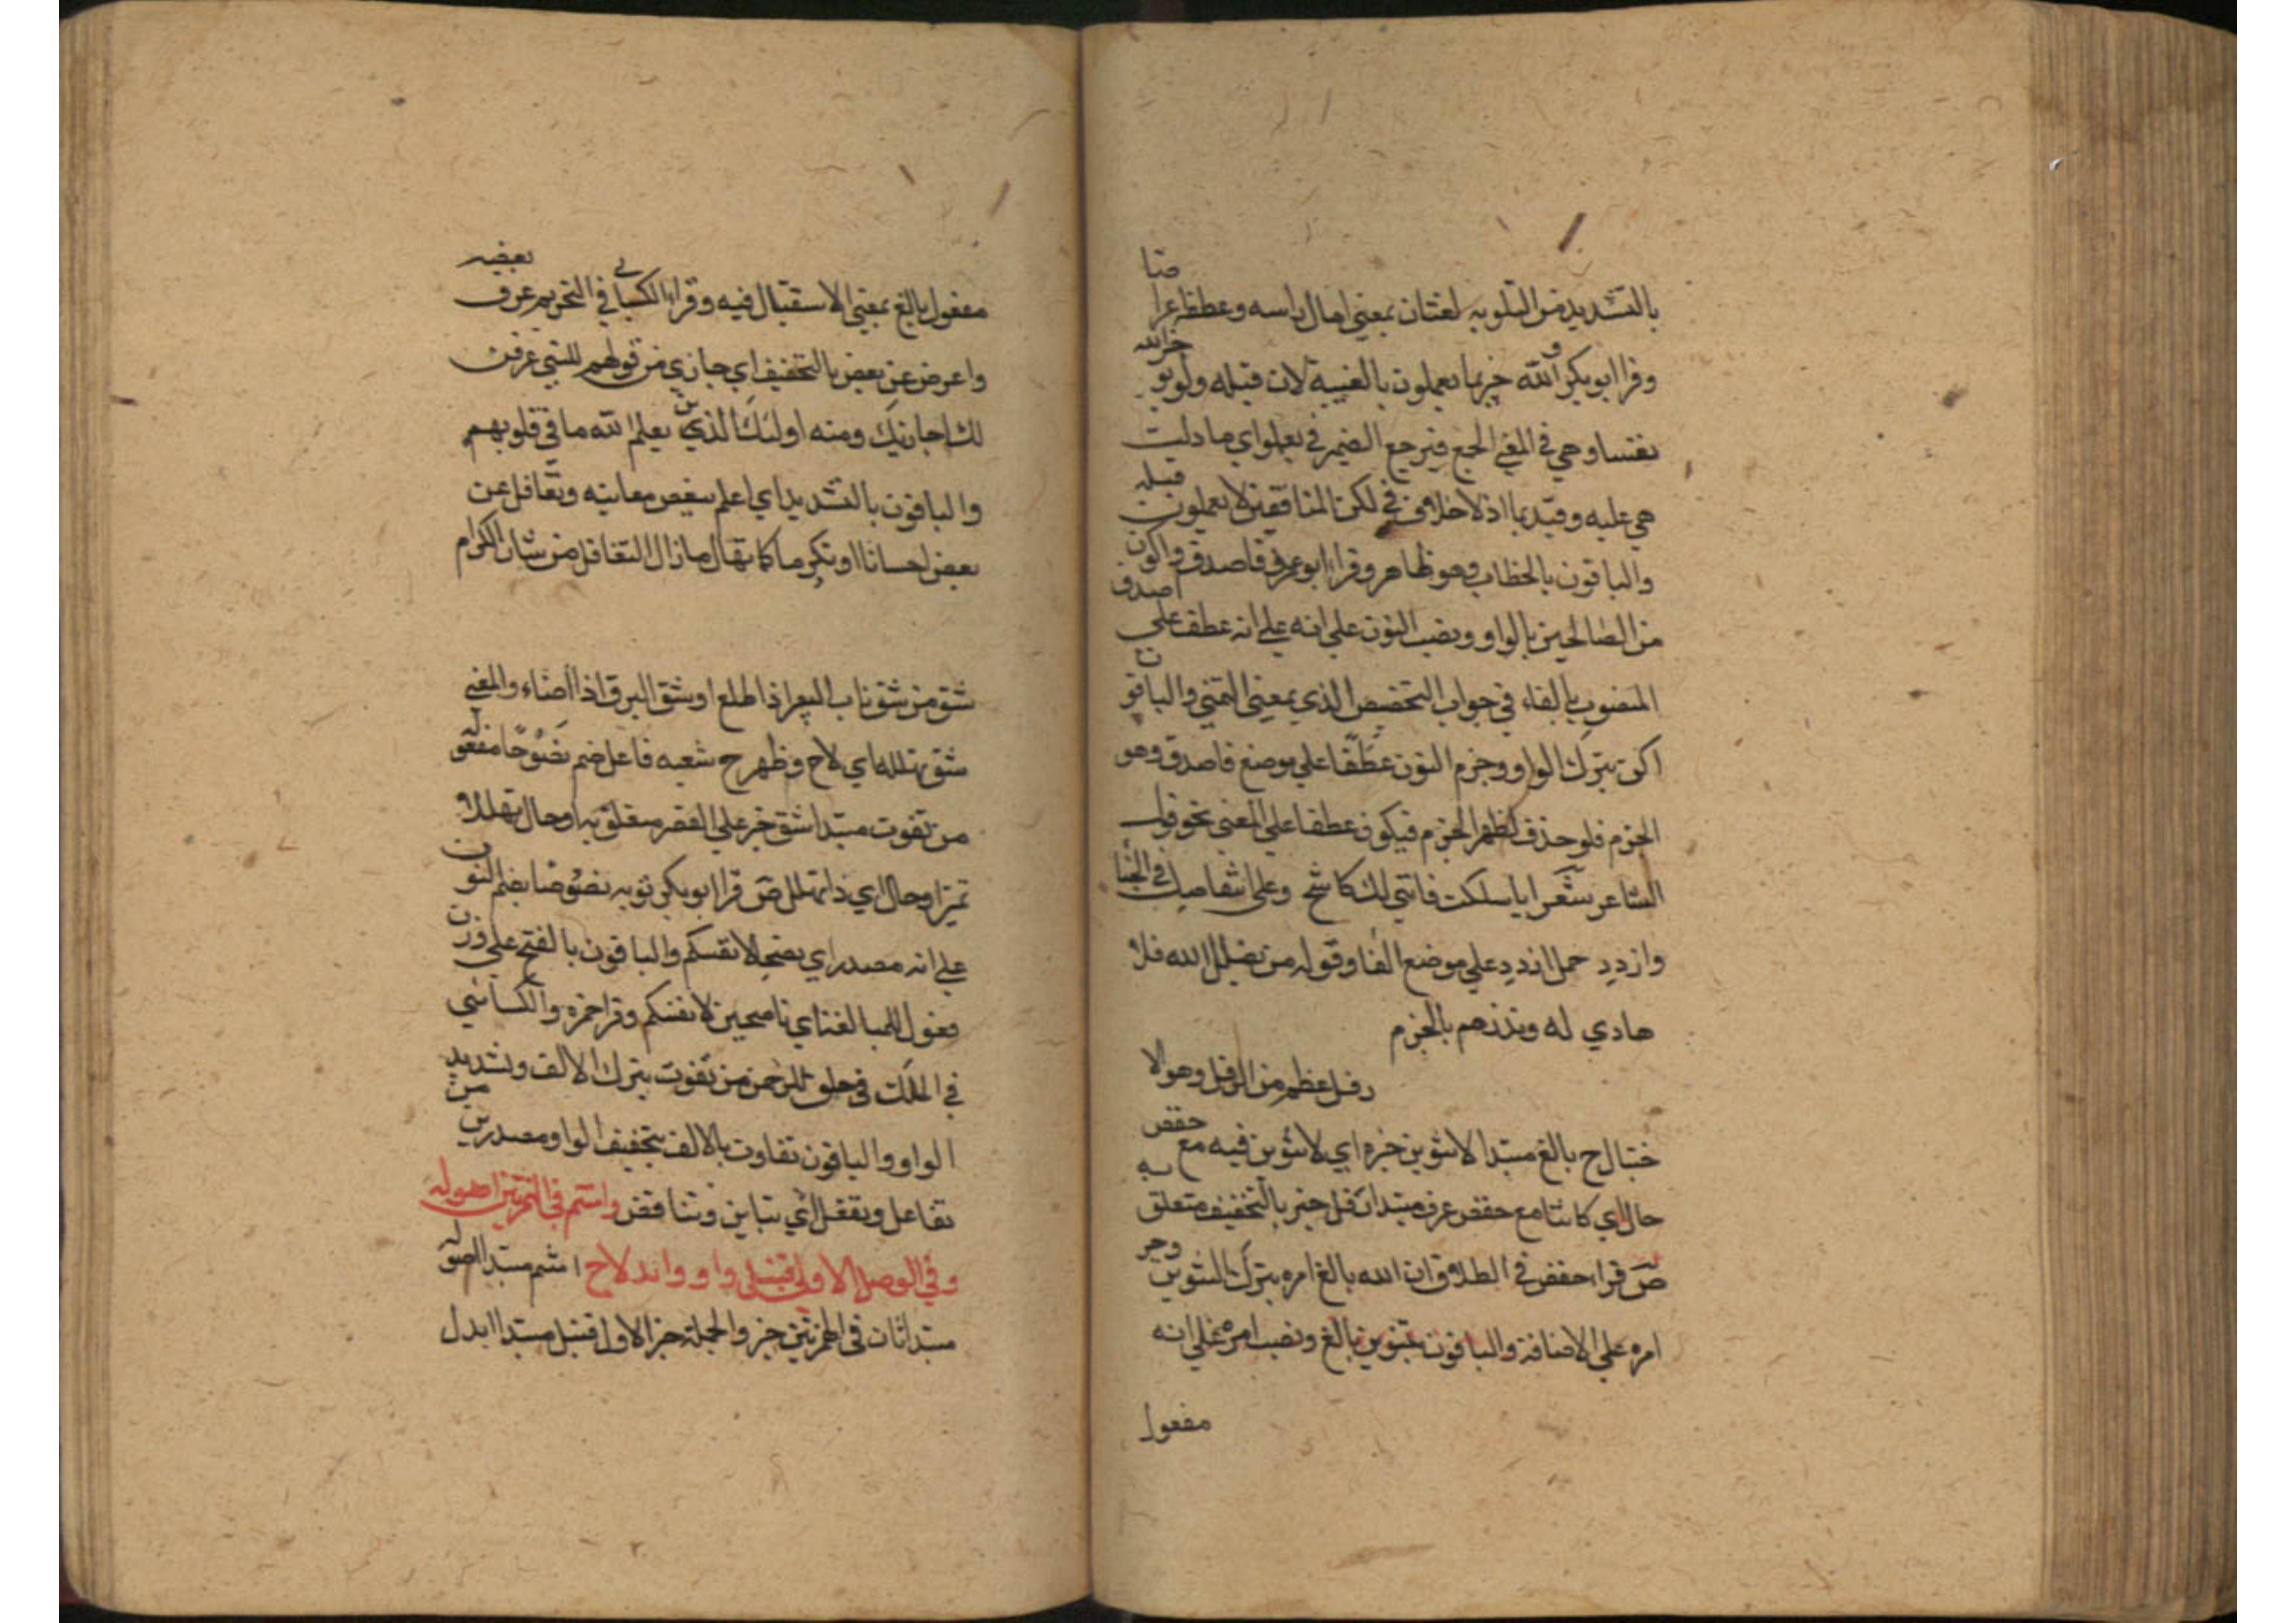 بالتشديد من التلويه لغتان بمعني امال راسه وعطفه اعراضا
وقرا ابو بكر والله خبير بما يعملون بالغيبة لان قبله ولن يوخر الله
نفسا وهي في المعني الجمع فيرجع الضمير في يعملوا اي ما دلت
هي عليه وقيد بما اذ لا خلاف في لكن المنافقين لا يعملون قبله
والباقون بالخطاب وهو ظاهر وقرا ابو عمرو فاصدق واكون
من الصالحين بالواو ونصب النون علي انه علي انه عطف علي اصدق
المنصوب بالفاء في جواب التحضيض الذي بمعني التمني والباقون
اكن بترك الواو وجزم النون عطفا علي موضع فاصدق وهو
الجزم فلو حذف لظهر الجزم فيكون عطفا علي المعني نحو قول
الشاعر شعرا ايا سلكت فانني لك كاشح وعلي انتقاصك في الحيا
وازدد حمل ازدد علي موضع الفا وقوله من يضلل الله فلا
هادي له ونذرهم بالجزم
رفل عظم من الرفل وهو الا
ختيال ح بالغ مبتدا لا تنوين خبره اي لا تنوين فيه مع حفص
حال اي كائنا مع حفص عرف مبتدا رفل خبر بالتخفيف متعلق به
ص قرا حفص في الطلاق ان الله بالغ امره بترك التنوين وجر
امره علي الاضافة والباقون بتنوين بالغ ونصب امره علي انه
مفعول
مفعول بالغ بمعني الاستقبال فيه وقرا الكسائي في التحريم عرف بعضه
واعرض عن بعض بالتخفيف اي جازي من قولهم للشي عرفت
لك اجازيك ومنه اولئك الذين يعلم الله ما في قلوبهم
والباقون بالتشديد اي اعلم ببعض معاتبه وتغافل عن
بعض احسانا او تكرما كما يقال ما زال التغافل من شان الكرام
شق من شق ناب البعير اذا طلع او شق البرق اذا اضاء والمعني
شق تهلله اي لاح وظهر ح شعبه فاعل ضم نصوحا مفعوله
من تفوت مبتدا شق خبر علي القصر متعلق به او حال تهللا
تميز او حال اي ذا تهلل ص قرا ابو بكر توبه نصوحا بضم النون
علي انه مصدر اي نصح لانفسكم والباقون بالفتح علي وزن
فعول للمبالغة اي ناصحين لانفسكم وقرا حمزه والكسائي
في الملك في خلق الرحمن من تفوت بترك الالف وتشديد
الواو والباقون تفاوت بالالف بتخفيف الواو مصدرين من
تفاعل وتفعل اي تباين وتناقض واشم في الهمزتين اصوله
وفي الوصل الاولي قنبل واو وابدلا ح اشم مبتدا اصوله
مبتدا ثان في الهمزتين خبر والجملة خبر الاول قنبل مبتدا ابدل